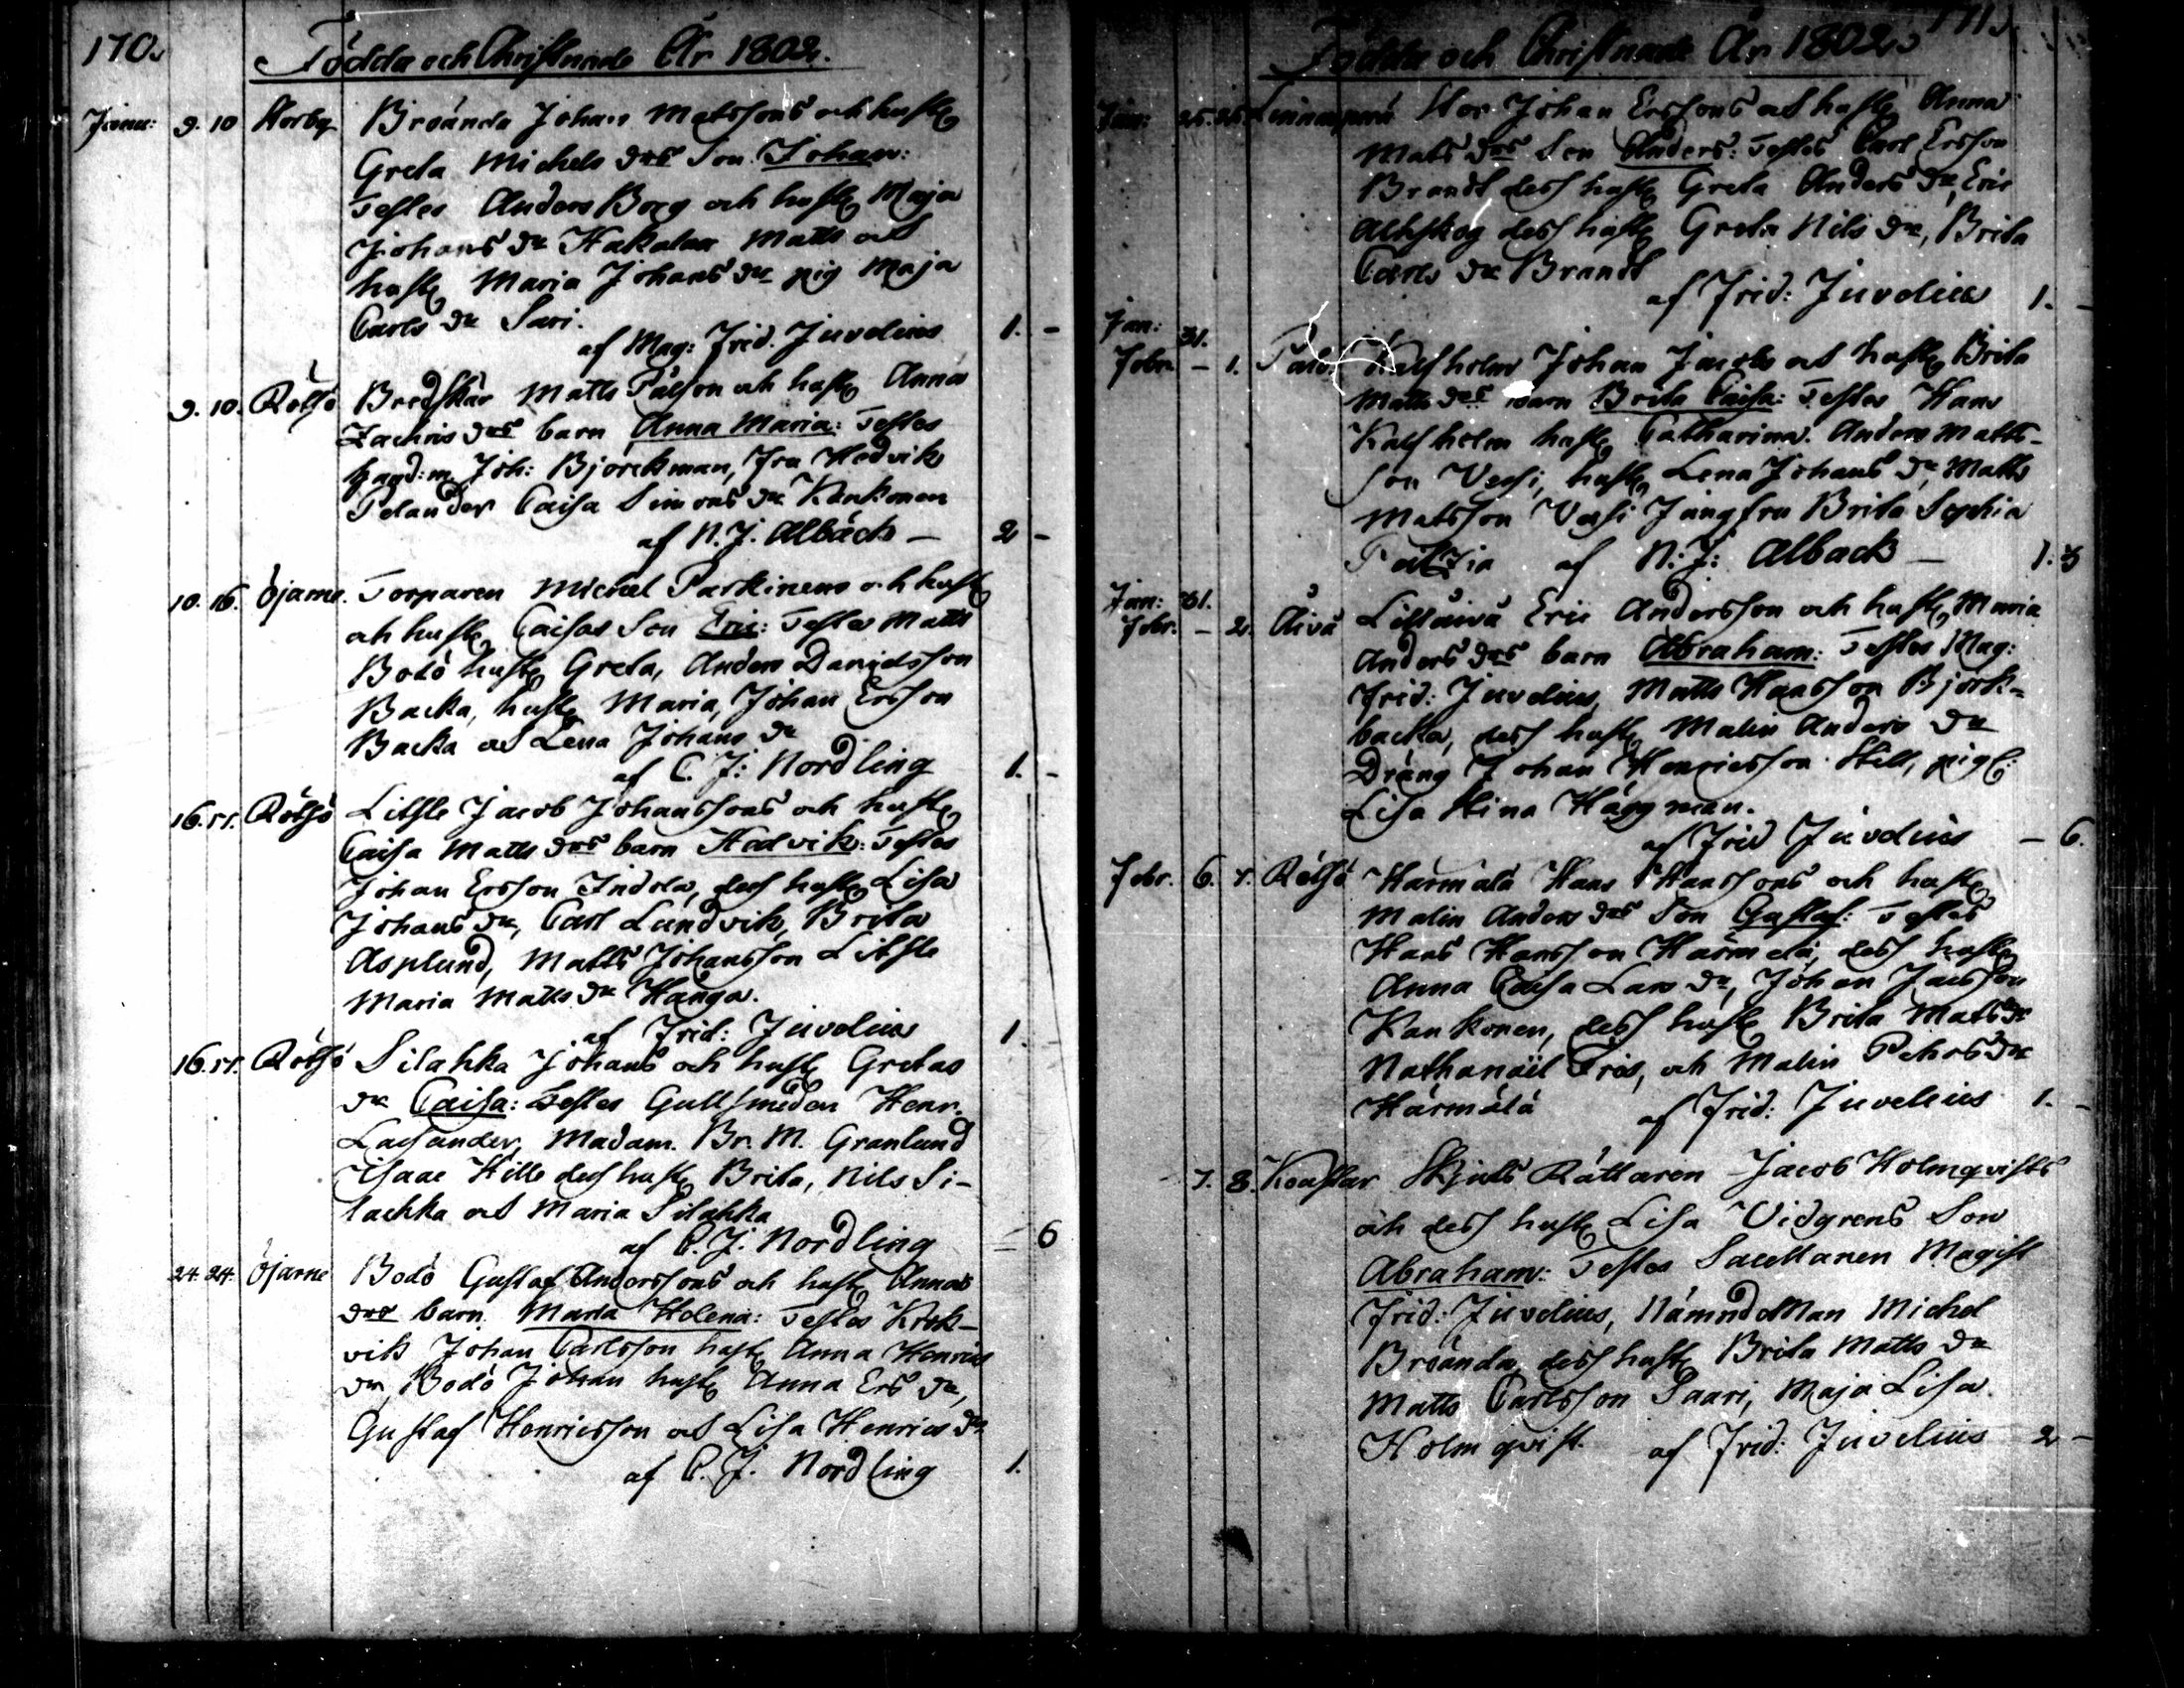 170.
Födda och Christnade År 1802.
Janu: 9. 10 Storby Broända Johan Matssons och hust:
Greta Michels drs Son Johan:
Testes Anders Borg och hust: Maja
Johans dr Hakalax Matts och
hust: Maria Johans dr pig Maja
Carls dr Sari.
af Mag: Frid. Juvelius 1. -
9. 10. Rötsö Bredskär Matts Pålson och hust: Anna
Zachris drs barn Anna Maria: Testes
Joh: Björckman, Fru Hedvik
Caisa Simons dr Kankonen
af N. J. Albäck — 2 -
10. 16. Öjarne. Torparen Michel Parkinens och hust:
och hust: Caisas Son Eric: Testes Matts
Bodö hust: Greta, Anders Danielsson
Backa, hust: Maria, Johan Ersson
Backa och Lena Johans dr
af C. J: Nordling 1. -
16. 17. Rötsö Litsle Jacob Johanssons och hust:
Caisa Matts drs barn Hedvik: Testes
Johan Ersson Indola, dess hust: Lisa
Johans dr, Carl Lundvik, Brita
Asplund, Matts Johansson Litsle
Maria Matts dr Hanga.
af Frid: Juvelius 1. -
16. 17. Rötsö Silahka Johans och hust: Gretas
dr Caisa: Testes Gullsmeden Henr.
Madam. Br. M. Granlund
Isaac Hille dess hust: Brita, Nils Si-
lachka och Maria Silahka
af C. J. Nordling — 6
24. 24. Öjarne Bodö Gustaf Anderssons och hust: Annas
drs barn Maria Helena: Testes Krok-
vik Johan Carlsson hust: Anna Henrics
dr, Bodö Johan hust: Anna Ers dr,
Gustaf Henricsson och Lisa Henrics dr
af C. J. Nordling 1.
171.
Födda och Christnade År 1802.
Jan: 25. 25. Stor Johan Erssons och hust: Anna
Mats drs Son Anders: Testes Carl Ersson
Brandt dess hust: Greta Anders dr, Eric
dess hust: Greta Nils dr, Brita
Carls dr Brandt
af Frid: Juvelius 1. -
Jan: 31.
Febr. — 1. Kalfholm Johan Jacobs och hust: Brita
Matts drs barn Brita Caisa: Testes Hans
Kalfholm hust: Catharina. Anders Matts-
son Vessi, hust: Lena Johans dr, Matts
Matsson Vessi Jungfru Brita Sophia
af N: J: Alback —
Jan: 31.
Febr. — 2. Åivå Lillåivå Eric Andersson och hust: Maria
Anders drs barn Abraham: Testes Mag:
Frid: Juvelius, Matts Hansson Björk-
backa, dess hust: Malin Anders dr
Dräng Johan Henricsson Still, pig:
Lisa Stina Häggman.
af Frid Juvelius — 6.
Febr. 6. 7. Rötsö Härmälä Hans Hanssons och hust:
Malin Anders drs Son Gustaf: Testes
Hans Hansson Härmälä, dess hust:
Anna Caisa Lars dr, Johan Jacsson
Kankonen, dess hust: Brita Mats dr
Nathanäel Fris, och Malin Pehrs dr
Härmälä af Frid: Juvelius 1. -
7. 8. Skjuts Rättaren Jacob Holmqvists
och dess hust: Lisa Vidgrens Son
Abraham: Testes Sacellanen Magist
Frid: Juvelius, NämndeMan Michel
Broända, dess hust: Brita Matts dr
Matts Carlsson Saari, Maja Lisa
Holmqvist. af Frid: Juvelius 2 -